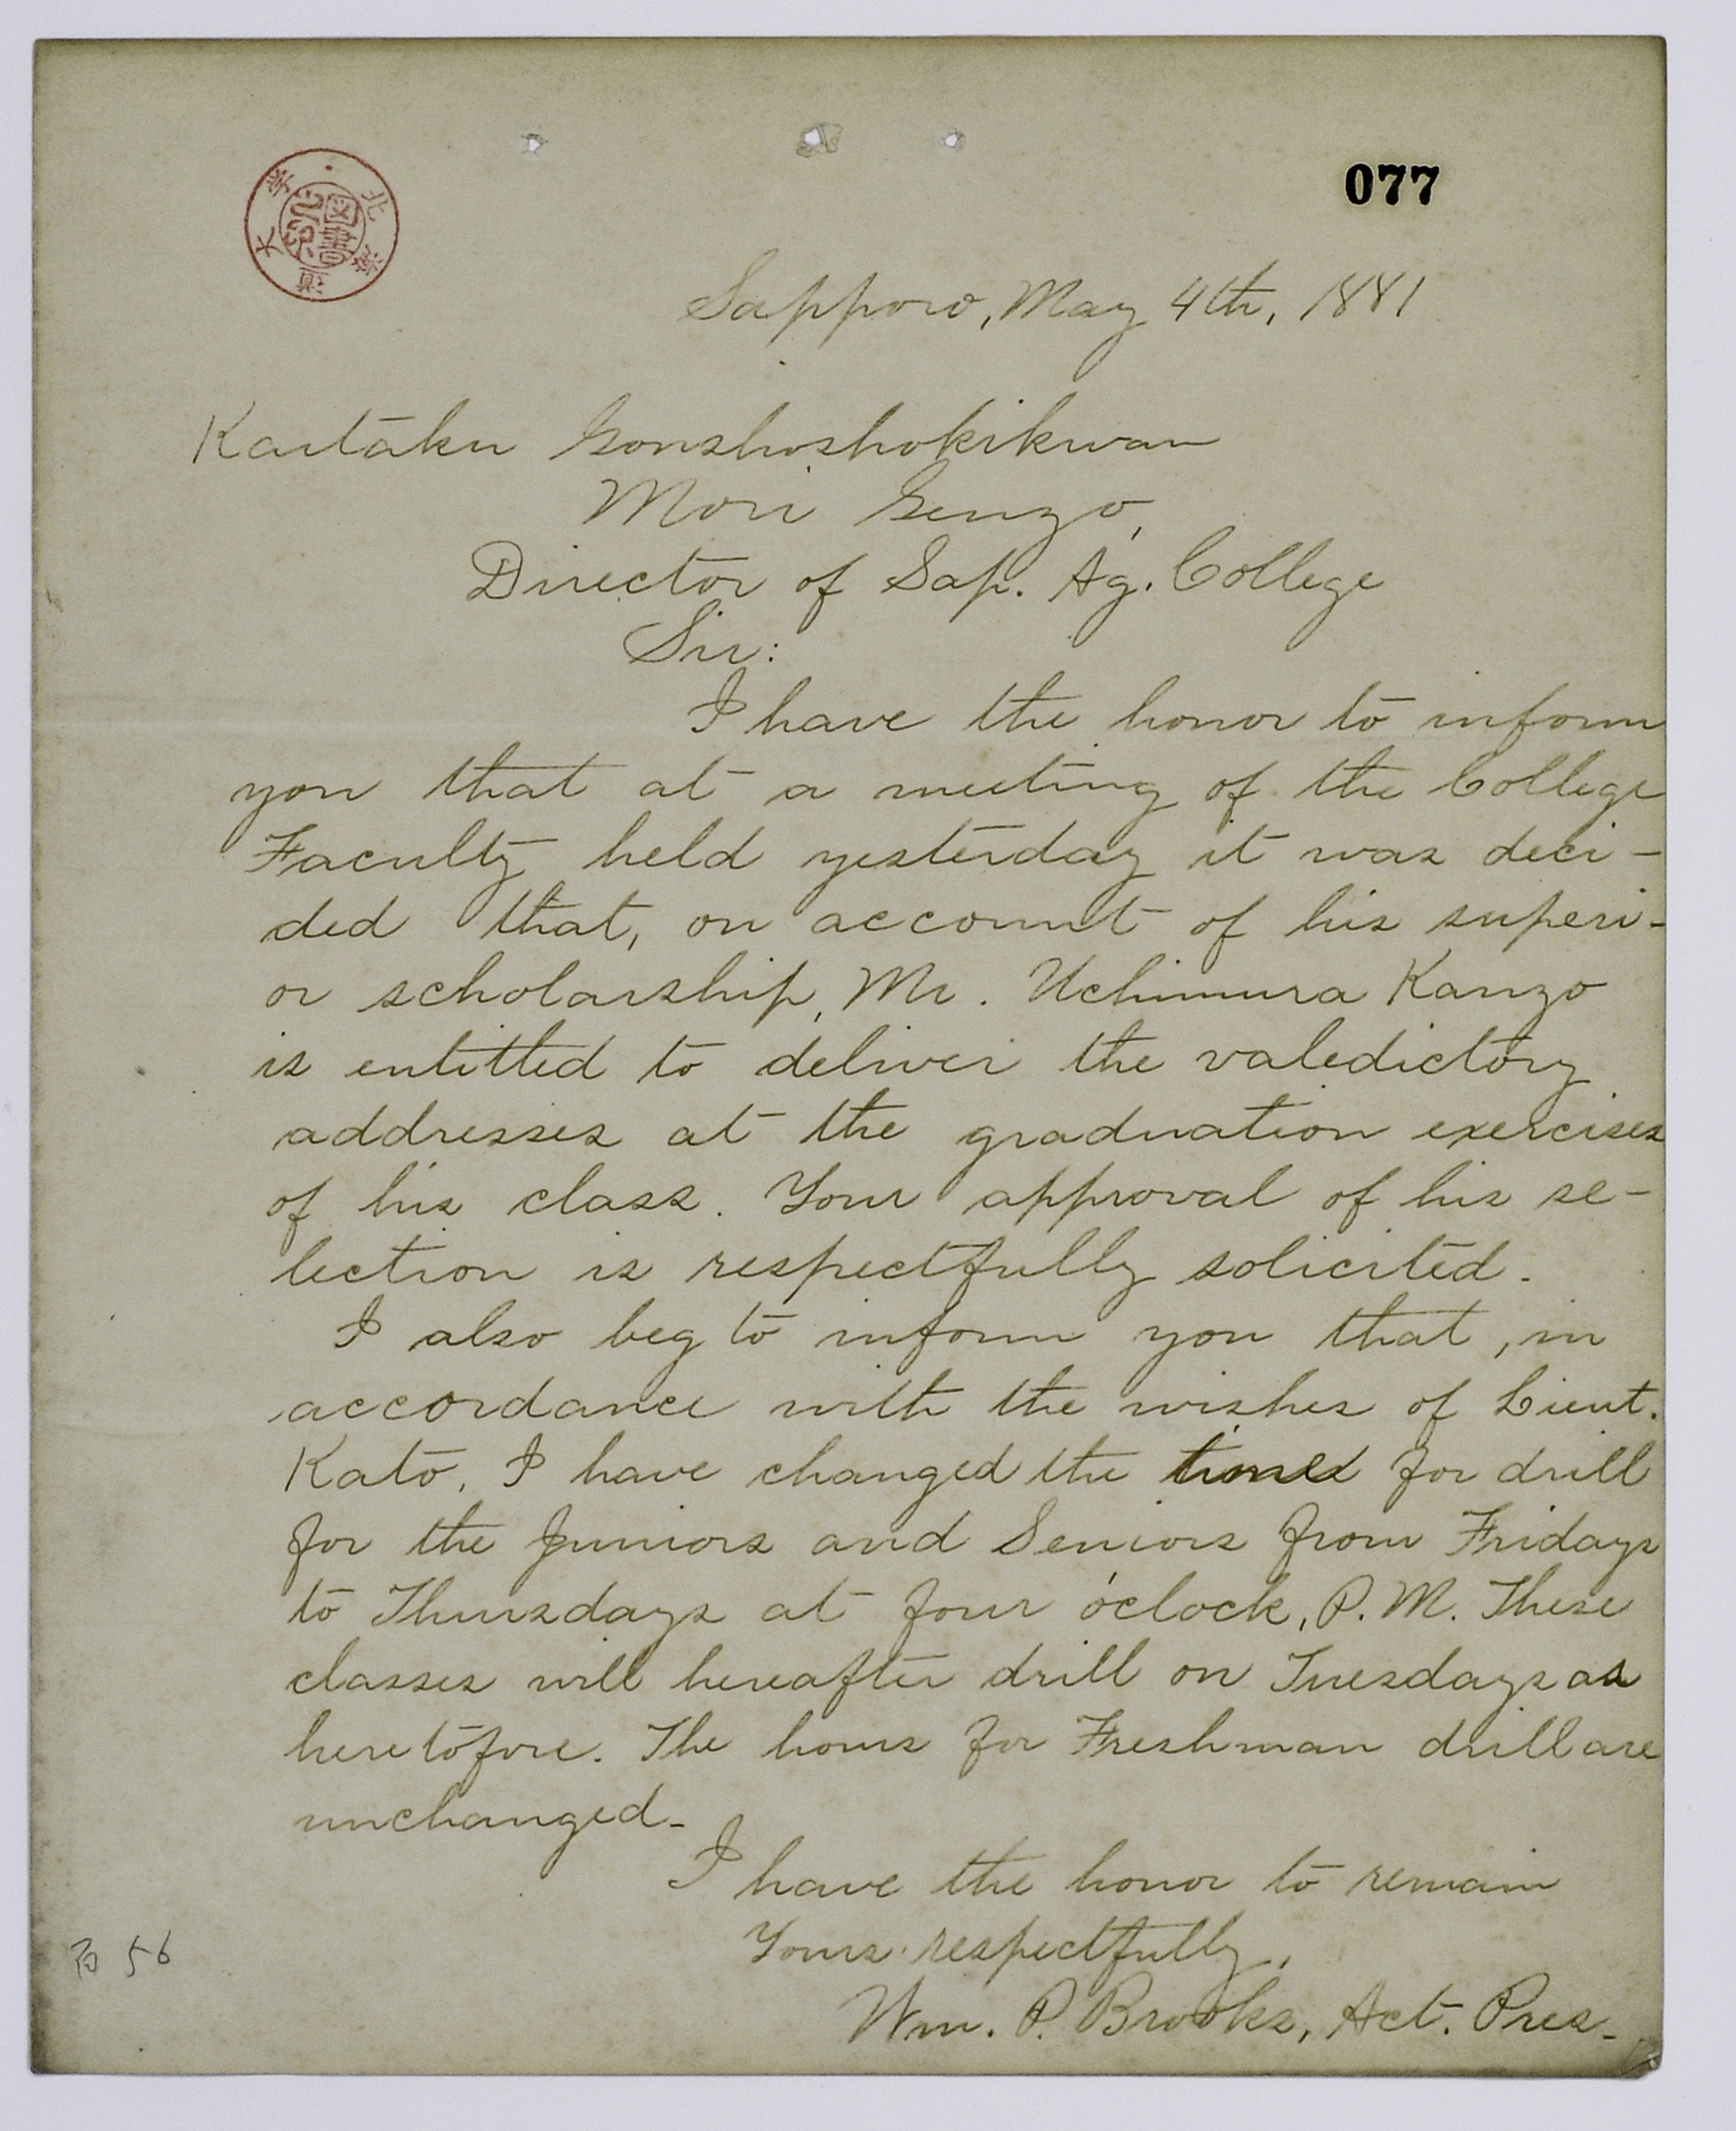 077
北海道大学
図書
Sapporo, May 4th, 1881
Kaitaku Gonshoshokikwan
Mori Genzo,
Director of Sap. Ag. College
Sir:
I have the honor to inform
you that at a meeting of the College
Faculty held yesterday it was deci-
ded that, on account of his superi-
or scholarship, Mr. Uchimura Kanzo
is entitled to deliver the valedictory
addresses at the graduation exercises
of his class. Your approval of his se-
lection is respectfully solicited.
I also beg to inform you that, in
accordance with the wishes of Lieut.
Kato, I have changed the times for drill
for the Juniors and Seniors from Fridays
to Thursdays at four o'clock, P.M. These
classes will hereafter drill on Tuesdays as
heretofore. The hours for Freshman drill are
unchanged.
I have the honor to remain
Yours respectfully,
Wm. P. Brooks, Act. Pres.
56